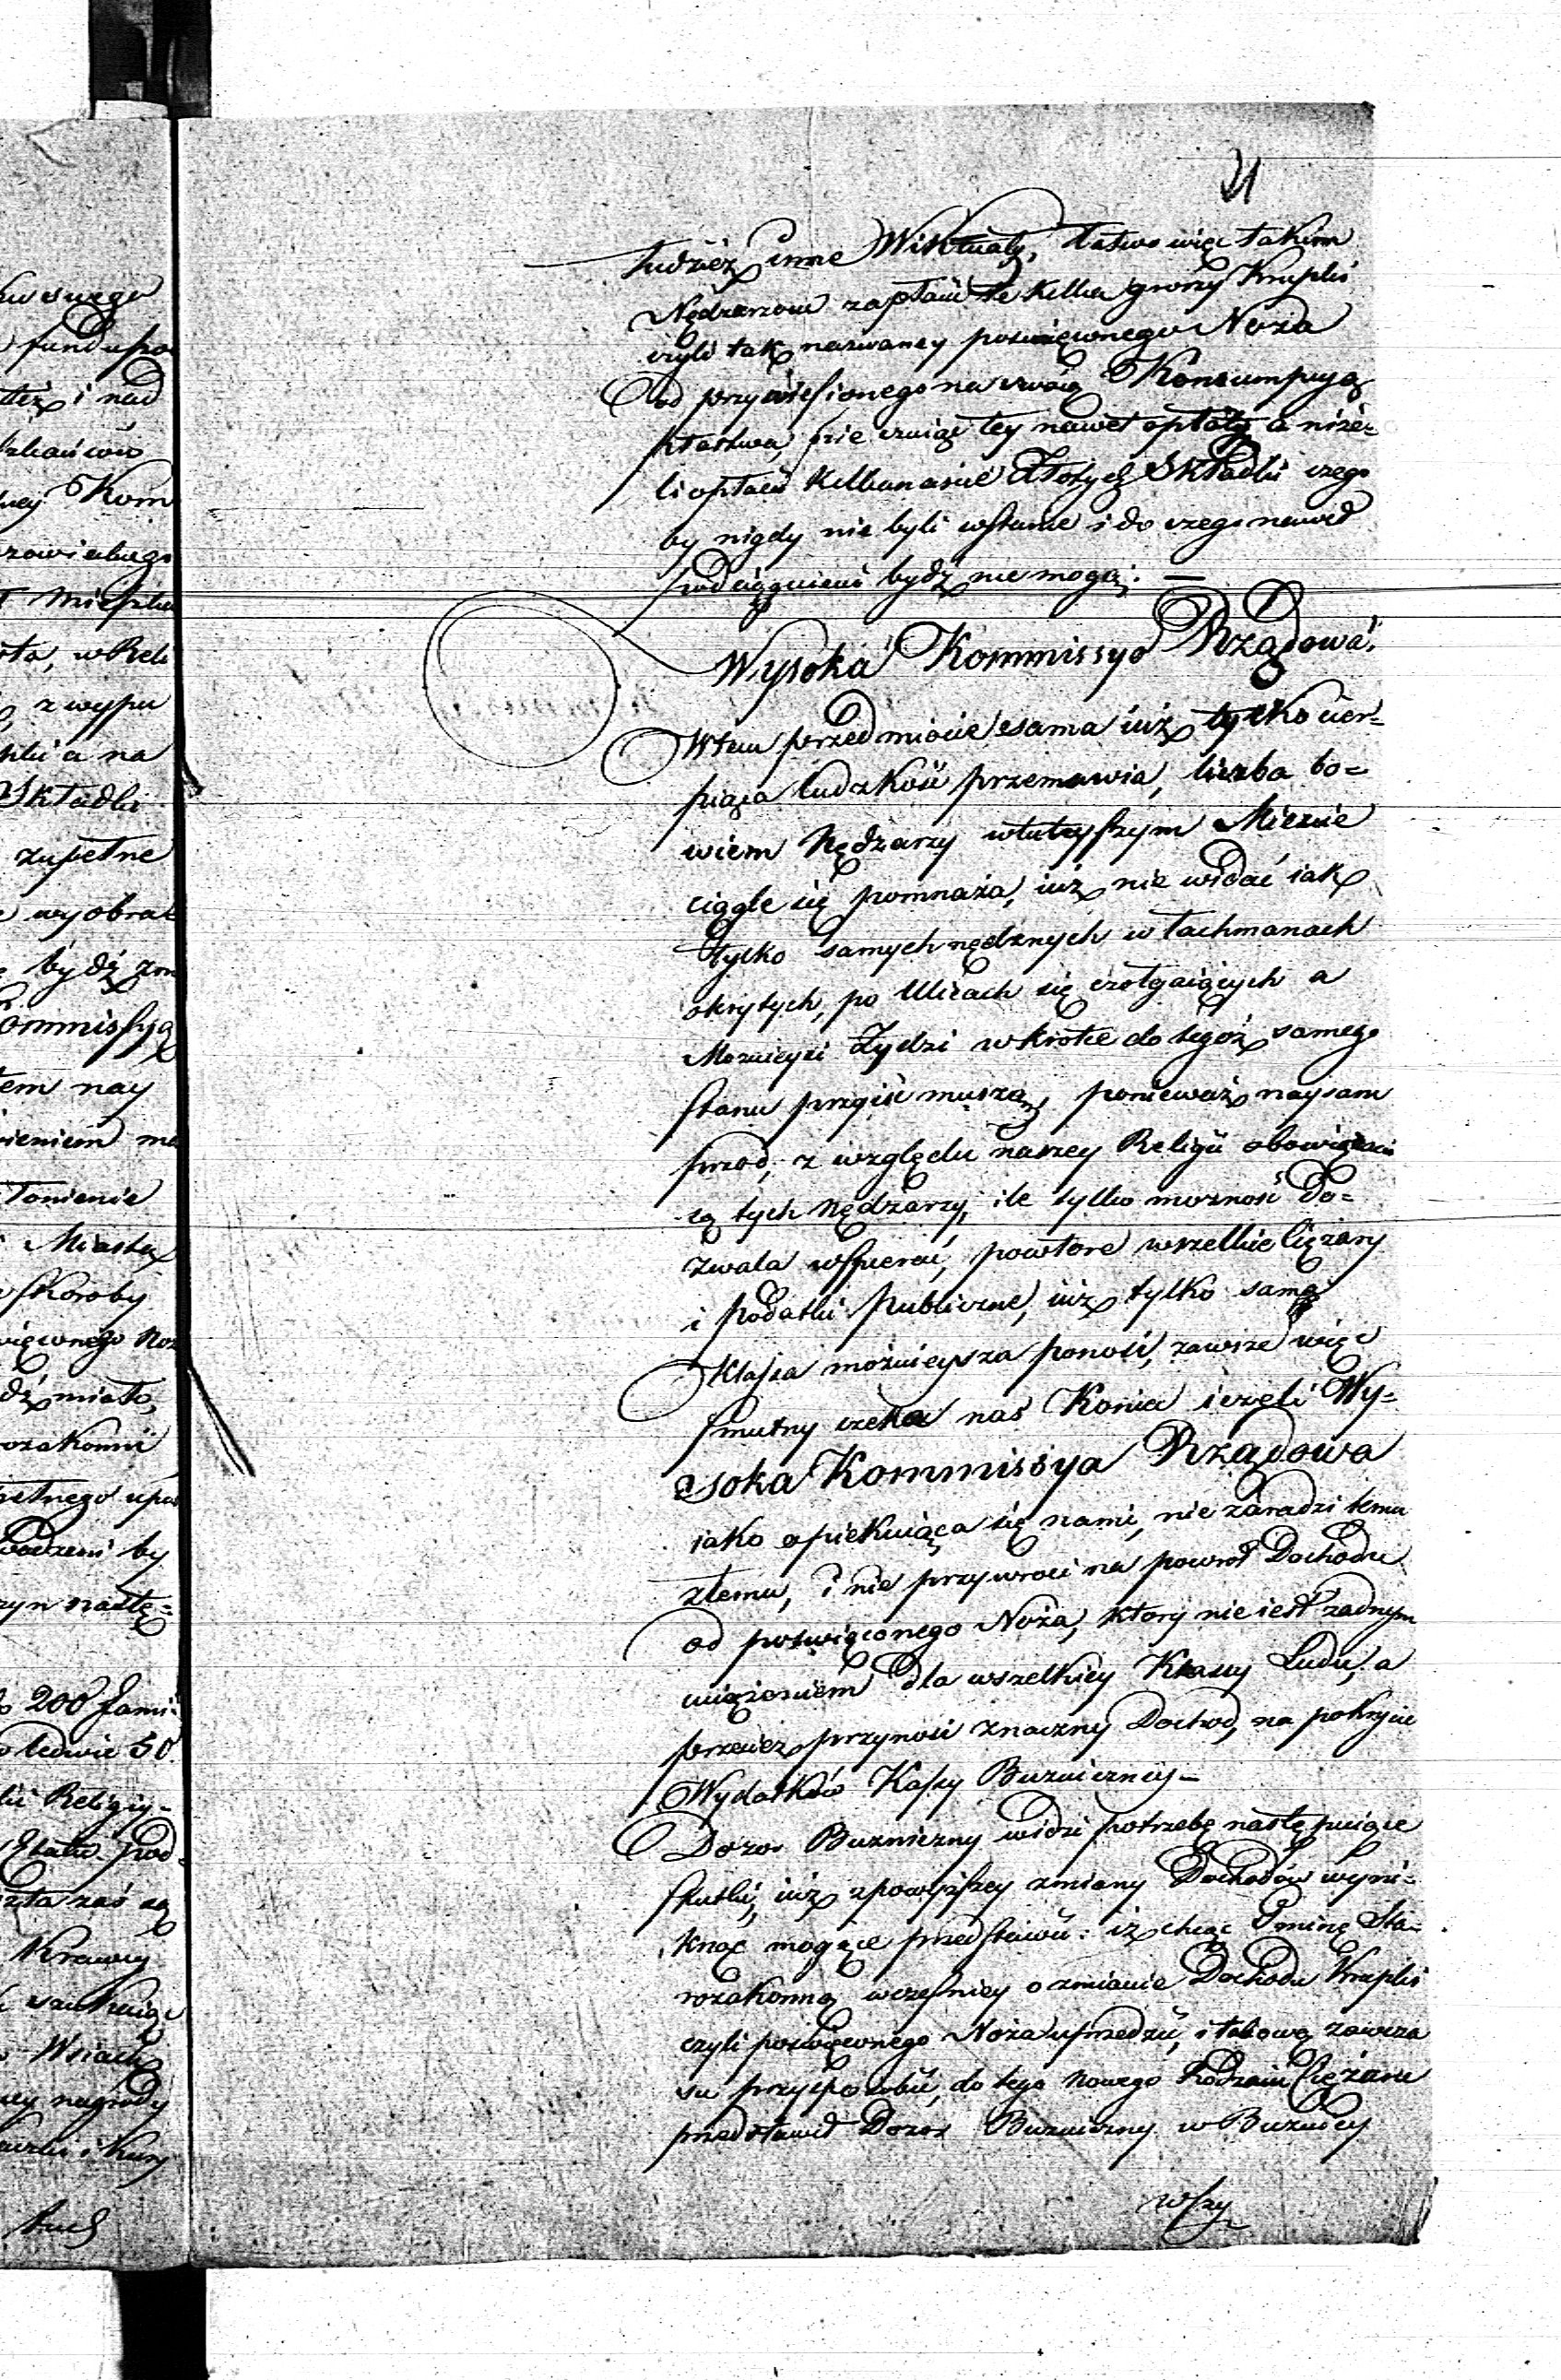 21
tudzież inne Wiktuały, łatwo więc takim
Nędzarzom zapłacić te kilka groszy Krupki
czyli tak nazwaney poswięconego Noża
od przyniesionego na swoią Konsumpcyą
ptastwa, nie czuiąc tey nawet opłaty a niże-
li opłacić kilkanaście Złotych Składki czego
by nigdy nie byli wstanie i do czego nawet
pociągnieni bydź nie mogą. —
Wysoka Kommissyo Rządowa!
Wtem przedmiocie sama iuż tylko cier=
piąca ludzkość przemawia, liczba bo=
wiem Nędzarzy wtuteyszym Mieście
ciągle się pomnaża, iuż nie widać iak
tylko samych nędznych w łachmanach
okrytych, po Ulicach się czołgaiących a
Moznieysi Żydzi wkrotce do tegoż samego
stanu przyiść muszą, ponieważ naysam
przod, z względu naszey Religii obowiązani
są tych Nędzarzy, ile tylko mozność do=
zwala wspierać, powtore wszelkie Ciężary
i podatki Publiczne, iuż tylko sama
Klassa możnieysza ponosi, zawsze więc
smutny czeka nas Koniec ieżeli Wy=
soka Kommissya Rządowa
iako opiekuiąca się nami, nie zaradzi temu
złemu, i nie przywroci na powrot Dochodu
od poswięconego Noża, ktory nie iest żadnym
uciążeniem dla wszelkiey Klassy Ludu, a
przecież przynosi znaczny Dochod, na pokrycie
Wydatków Kassy Bużniczney—
Dozor Bużniczny widzi potrzebę następuiące
skutki, iuż z powyższey zmiany Dochodów wyni=
knąć mogące przedstawić: iż chcąc Gminę Sta-
rozakonną wcześniey o zmianie Dochodu Krupki
czyli poswięconego Noża uprzedzić, i takową zawcza
su przysposobić, do tego nowego Rodzaiu Ciężaru
przedstawił Dozor Bużniczny w Bużnicy
wszy
kuesnego
też i nad
Kom
z wypu
a na
Składki
zupełne
bydź
Kommissyą
tem nay
Miasta
skoroby
miało,
upa
by
nastę=
200 Fami=
ledwie 50
Religiy-
Etatu
zaś są
Krawcy
Wsiach
nagrody
i Kury
tud